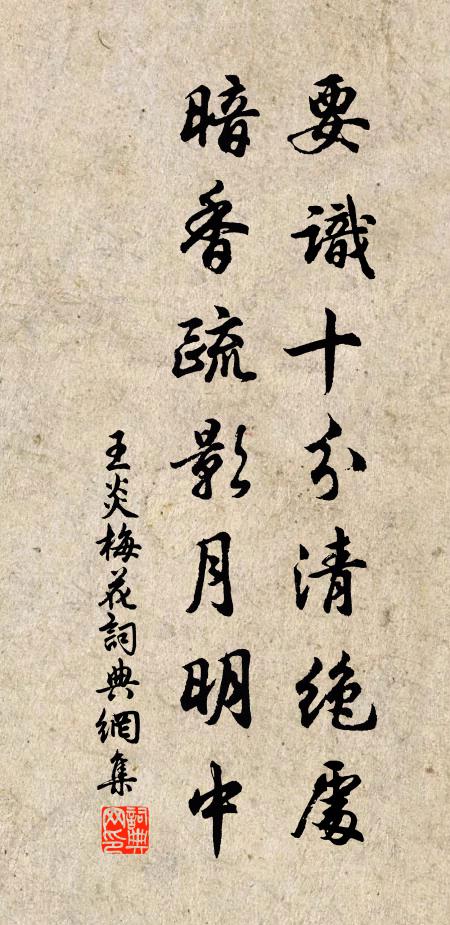 要識十分清絕處
暗香疏影月明中
王炎梅花詞典網集
詞典網印